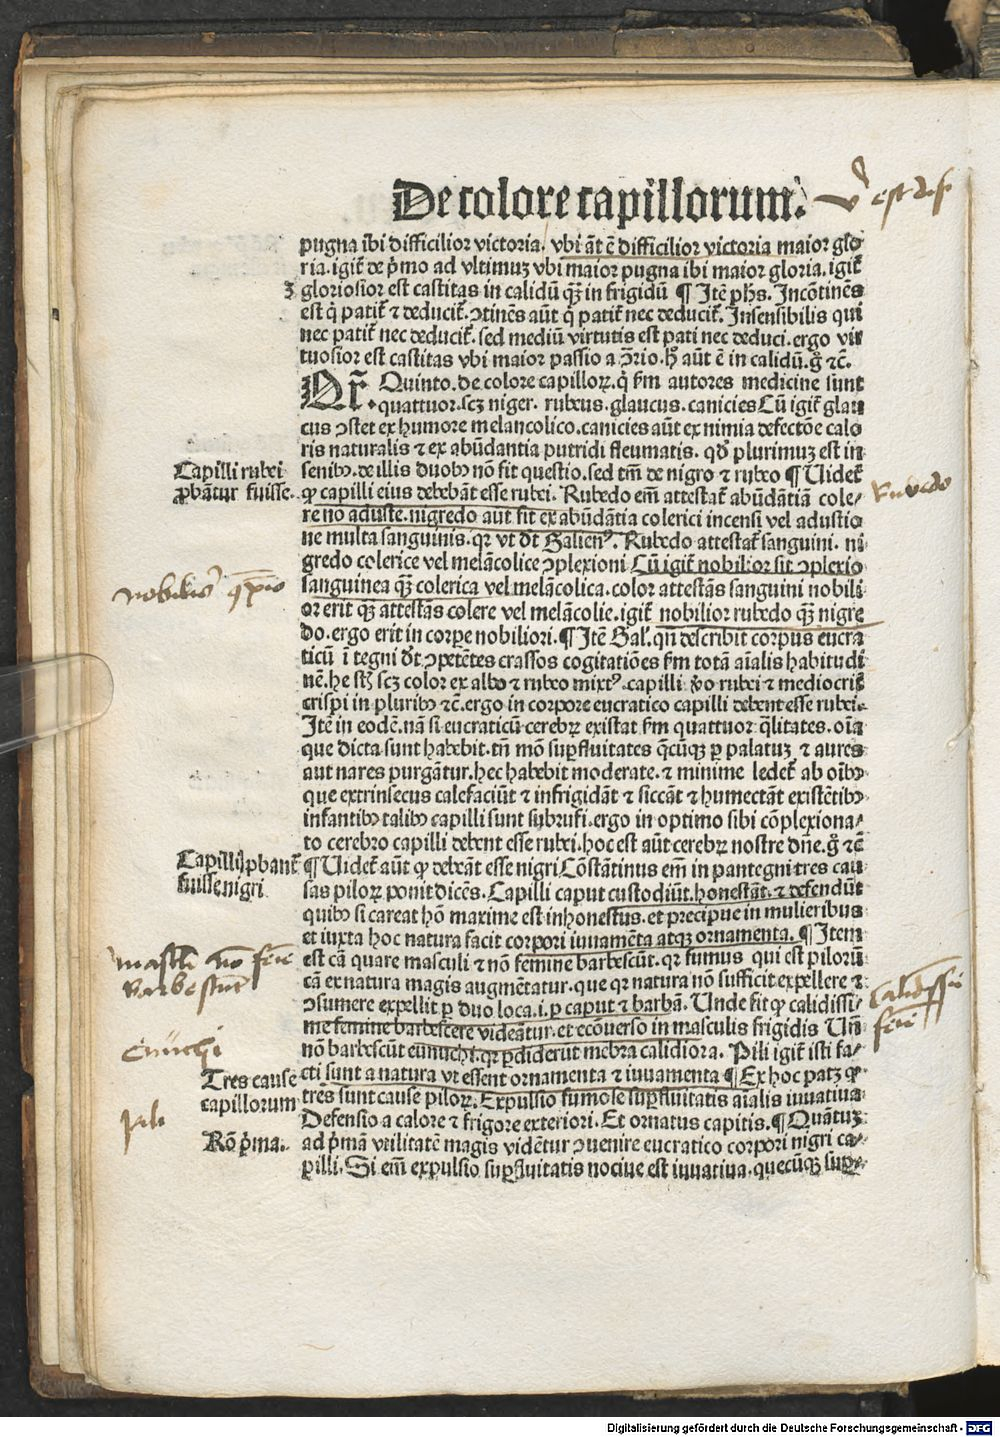 De colore capillorum.
pugna ibi difficilior victoria. vbi āt ē difficilior victoria maior glo
ria. igit̄ de p̄mo ad vltimuꝫ vbi maior pugna ibi maior gloria. igit̄
gloriosior est castitas in calidū q̄ꝫ in frigidū ¶ Itē ph̄s. Incōtinēs
est q̇ patit̄ ⁊ deducit̄. ꝯtinēs aūt q̇ patit̄ nec deducit̄. Insensibilis qui
nec patit̄ nec deducit̄. sed mediū virtutis est pati nec deduci. ergo vir
tuosior est castitas vbi maior passio a ꝯ̄rio. h̥ aūt ē in calidū. g̊ ⁊c̄.
Qr̄. Quinto. de colore capilloꝝ. q̇ ẜm autores medicine sunt
quattuor. scꝫ niger. rubeus. glaucus. canicies Cū igit̄ glau
cus ꝯstet ex humore melancolico. canicies aūt ex nimia defectōe calo
ris naturalis ⁊ ex abūdantia putridi fleumatis. qd̛ plurimuꝫ est in
senibꝰ. de illis duobꝰ nō fit questio. sed tm̄ de nigro ⁊ rubeo ¶ Uidet̄
ꝙ capilli eius debebāt esse rubei. Rubedo em̄ attestat̄ abūdātiā cole/
re no aduste. nigredo aut fit ex abūdātia colerici incensi vel adustio
ne multa sanguinis. qꝛ vt dt̄ Galienꝰ. Rubedo attestat̄ sanguini. ni
gredo colerice vel melācolice ꝯplexioni Cū igit̄ nobilior sit ꝯplexio
sanguinea q̄ꝫ colerica vel melācolica. color attestās sanguini nobili
or erit q̄ꝫ attestās colere vel melācolie. igit̄ nobilior rubedo q̄ꝫ nigre
do. ergo erit in corpe nobiliori. ¶ Itē Gal̛. qn̄ describit corpus eucra
ticū ī tegni dt̄ ꝯpetētes crassos cogitatiōes ẜm totā aīalis habitudi
nē. he st̄ scꝫ color ex albo ⁊ rubeo mixtꝰ. capilli v̊o rubei ⁊ mediocrit̄
crispi in pluribꝰ ⁊c̄. ergo in corpore eucratico capilli debent esse rubei.
Itē in eodē. nā si eucraticū cerebꝝ existat ẜm quattuor q̄litates. oīa
que dicta sunt habebit. tn̄ mō suꝑfluitates q̄cūqꝫ ꝑ palatuꝫ ⁊ aures
aut nares purgātur. hec habebit moderate. ⁊ minime ledet̄ ab oībꝰ
que extrinsecus calefaciūt ⁊ infrigidāt ⁊ siccāt ⁊ humectāt existētibꝰ
infantibꝰ talibꝰ capilli sunt subrufi. ergo in optimo sibi cōplexiona/
to cerebro capilli debent esse rubei. hoc est aūt cerebꝝ nostre dn̄e. g̊ ⁊c̄
¶ Uidet̄ aūt ꝙ debeāt esse nigri Cōstātinus em̄ in pantegni tres cau
sas piloꝝ ponit dicēs. Capilli caput custodiūt. honestāt. ⁊ defendūt
quibꝰ si careat hō maxime est inhonestus. et precipue in mulieribus
et iuxta hoc natura facit corpori iuuamēta atqꝫ ornamenta. ¶ Item
est cā quare masculi ⁊ nō femine barbescūt. qꝛ fumus qui est pilorū
cā ex natura magis augmētatur. que qꝛ natura nō sufficit expellere ⁊
ꝯsumere expellit ꝑ duo loca. i. ꝑ caput ⁊ barbā. Unde fit ꝙ calidissi/
me femine barbescere videātur. et ecōuerso in masculis frigidis Un̄
nō barbescūt eunuchi. qꝛ ꝑdiderūt mēbra calidiora. Pili igit̄ isti fa/
cti sunt a natura vt essent ornamenta ⁊ iuuamenta ¶ Ex hoc patꝫ ꝙ
trēs sunt cause piloꝝ. Expulsio fumose suꝑfluitatis aīalis iuuatiua
Defensio a calore ⁊ frigore exteriori. Et ornatus capitis. ¶ Quātuꝫ
ad p̄mā vtilitatē magis vidētur ꝯuenire eucratico corpori nigri ca/
pilli. Si em̄ expulsio suꝑfluitatis nociue est iuuatiua. quecūqꝫ suꝑ/
3
Capilli rubei
ꝓbātur fuisse.
Rubedo
nobilior
Capilli ꝓbant̄
fuisse nigri
barbescunt
Eunuchi
Tres cause
capillorum
pili
Rō p̄ma.
Digitalisierung gefördert durch die Deutsche Forschungsgemeinschaft - DFG